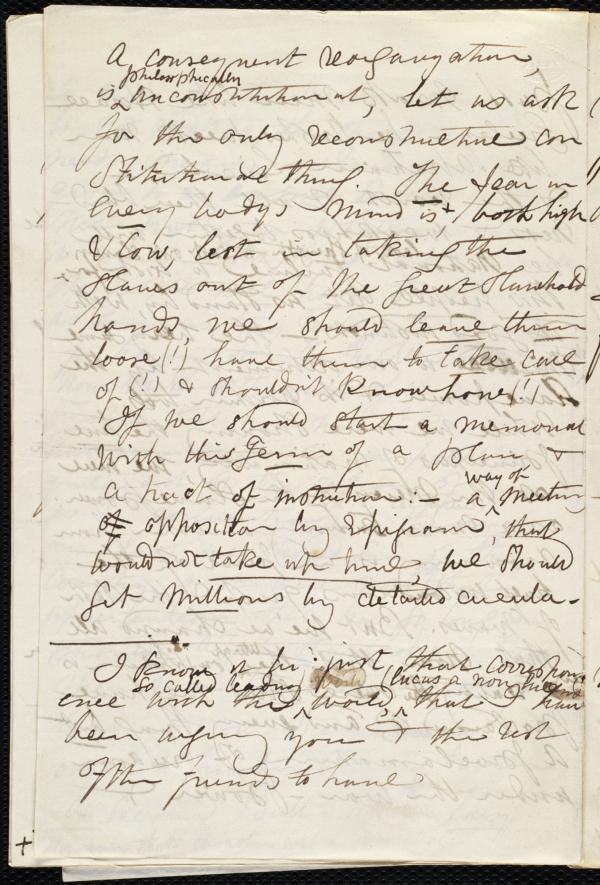 A consequent reorganization,
philosophically
is ^ unconstitutional, let us ask
for the only reconstructive con
stitutional thing. The fear in
every bodys mind is, both high
& low, lest in taking the
slaves out of the Great Slavehold
hands, we should leave them
loose (!) have them to take care
of (!) & shouldn't know how (!) -
If we should start a memorial
with this Germ of a plan &
a tract of instruction:- way of
a ^ meeting
of opposition by Epigram, that
would not take up time, we should
get Millions by detailed circula-
I know it by just that correspond
so called leading (Lucas a non
ence with the ^ world, ^ that I have
been urging you & the rest
of the friends to have
+